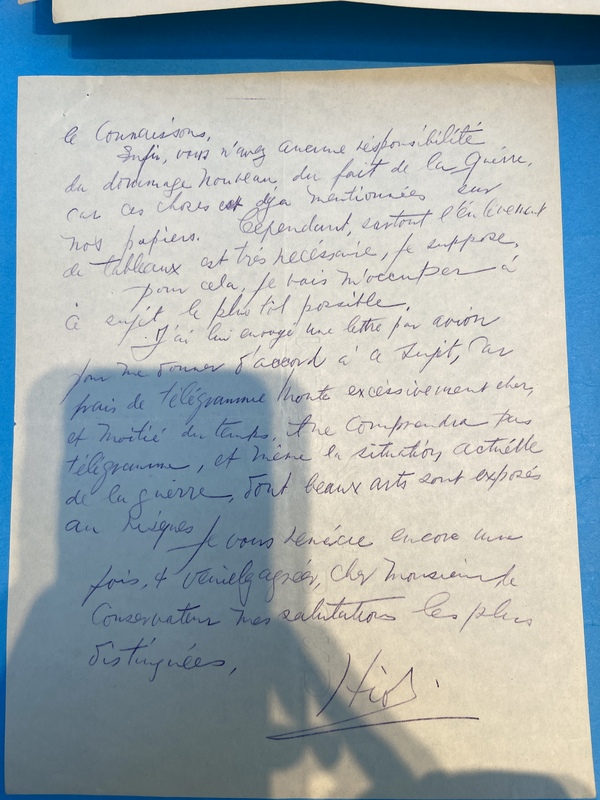 le Connaissons.
Enfin, vous n'avez aucune résponsibilité
du dommage nouveau du fait de la Guerre,
car ces choses est déja mentionnées sur
nos papiers. Cépendant, surtout l'énlèvement
de tableaux est très nécéssaire, je suppose.
pour cela, je vais m'occuper à
ce sujet le plus tôt possible.
J'ai lui envoyé une lettre par avion
pour me donner d'accord à ce sujet, car
frais de télégramme monte excéssivement cher,
et moitié du temps, ne comprendra pas
télégramme, et même la situation actuélle
de la guerre, dont beaux arts sont exposés
au risques
Je vous remércie encore une
fois, & veuillez agréer, cher Monsieur le
Conservateur mes salutations les plus
distinguées,